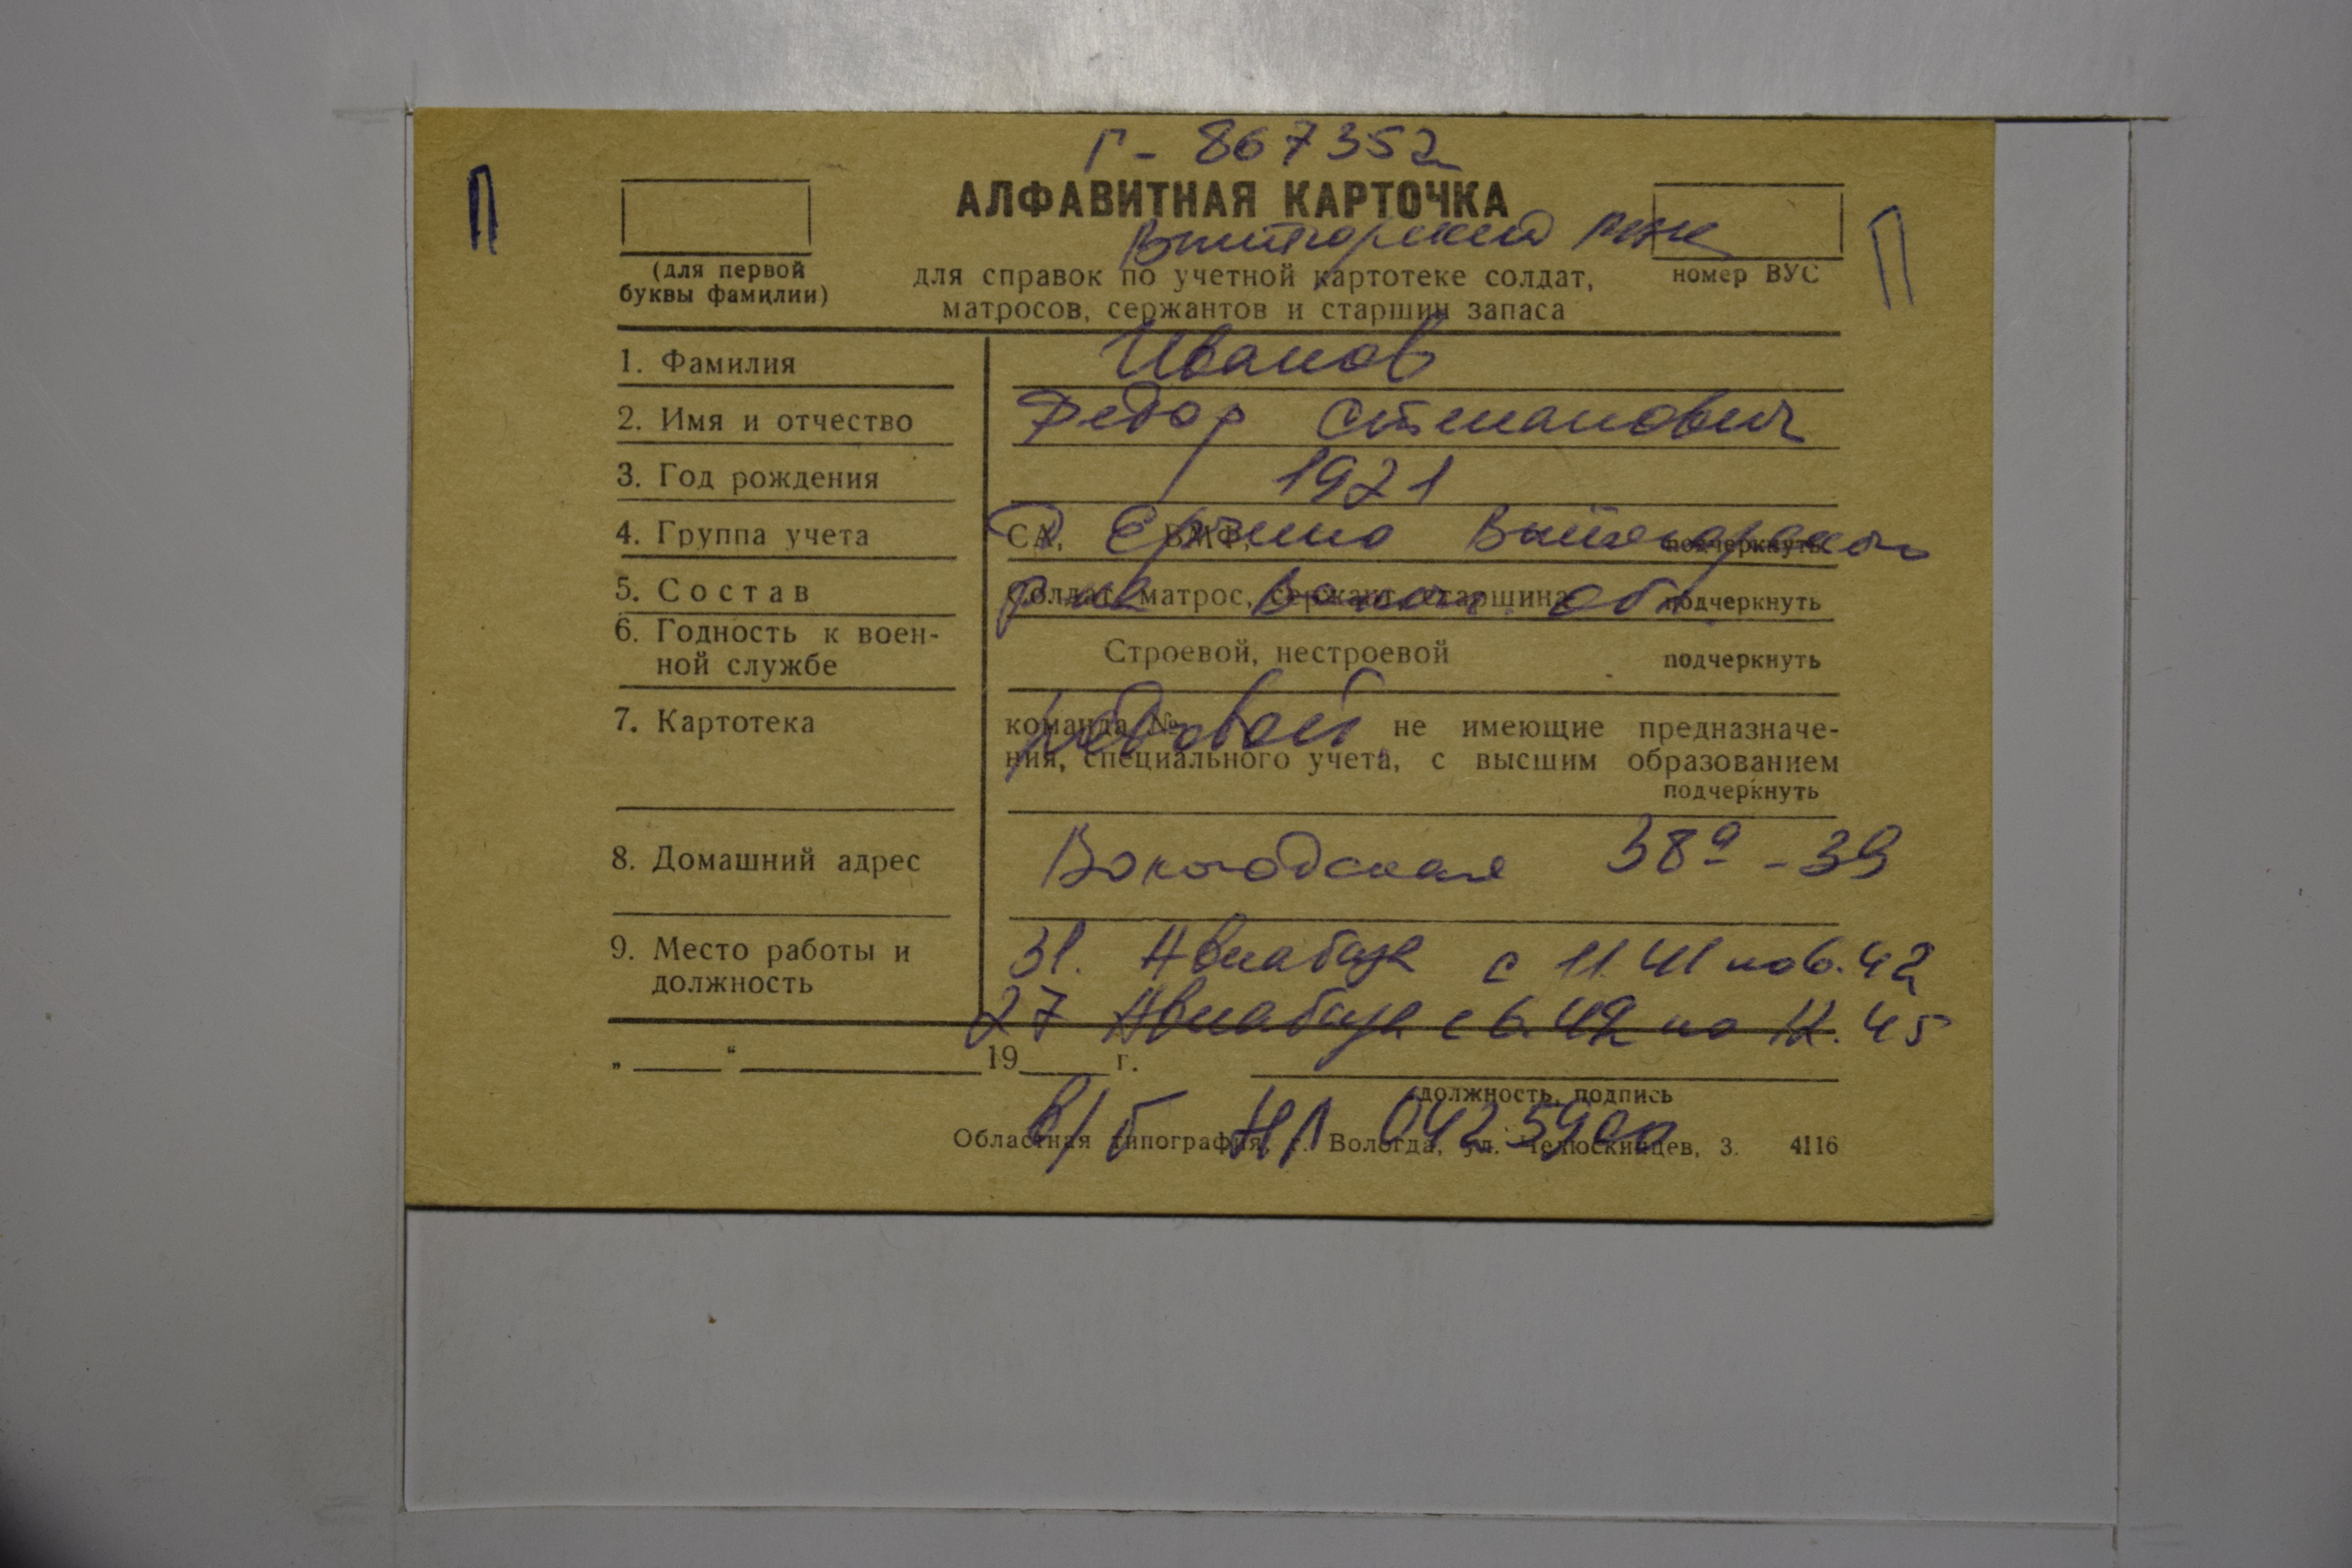 Г- 867352
П
АЛФАВИТНАЯ КАРТОЧКА
П
(для первой
буквы фамилии)
для справок по учетной картотеке солдат,
матросов, сержантов и старшин запаса
номер ВУС
1. Фамилия Иванов
2. Имя и отчество Федор Степанович
3. Год рождения 1921
4. Группа учета СА, ВМФ, подчеркнуть
Д Вытегорского
5. Состав Солдат, матрос, сержант, старшина подчеркнуть
р-на Волог. обл.
6. Годность к воен-
ной службе
Строевой, нестроевой подчеркнуть
7. Картотека
команда № не имеющие предназначе-
ния, специального учета, с высшим образованием
подчеркнуть
рядовой
8. Домашний адрес Вологодская 38а - 39
9. Место работы и
должность
31. Авиабаза с 11.41 по 6.42
27 Авиабаза с 6.42 по 45
„ “ 19 г.
должность, подпись
в/б НЛ
Областная типография, г. Вологда, ул. Челюскинцев, 3. 4116